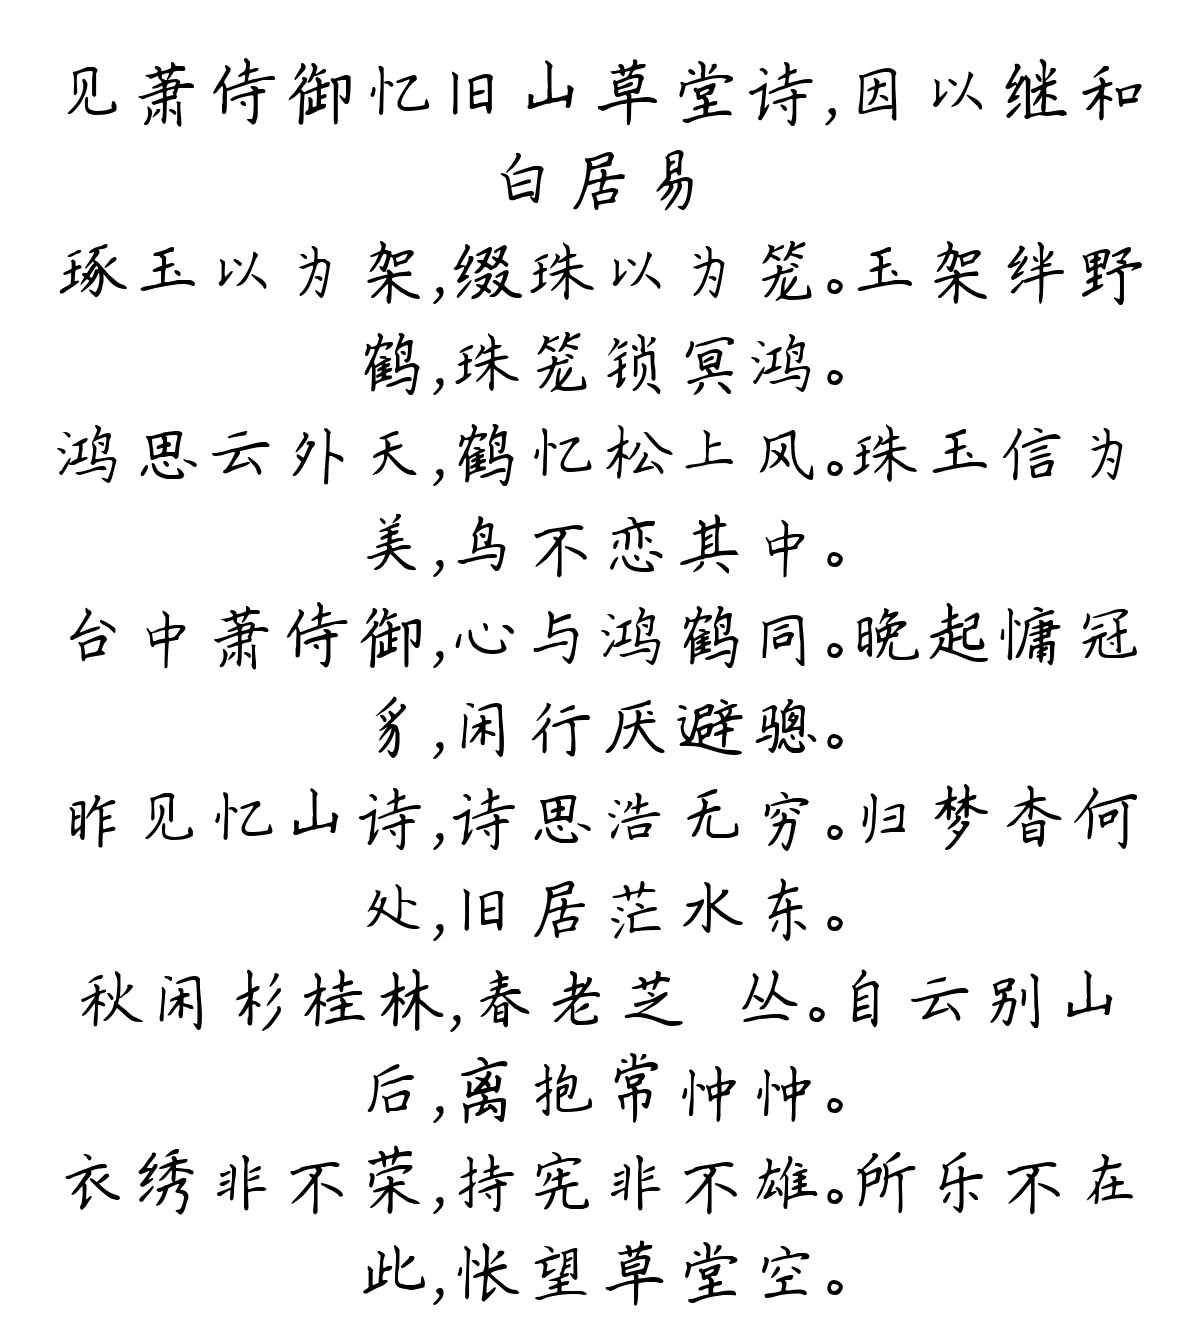 见萧侍御忆旧山草堂诗,因以继和
白居易
琢玉以为架,缀珠以为笼。玉架绊野
鹤,珠笼锁冥鸿。
鸿思云外天,鹤忆松上风。珠玉信为
美,鸟不恋其中。
台中萧侍御,心与鸿鹤同。晚起慵冠
豸,闲行厌避骢。
昨见忆山诗,诗思浩无穷。归梦杳何
处,旧居茫水东。
秋闲杉桂林,春老芝 丛。自云别山
后,离抱常忡忡。
衣绣非不荣,持宪非不雄。所乐不在
此,怅望草堂空。